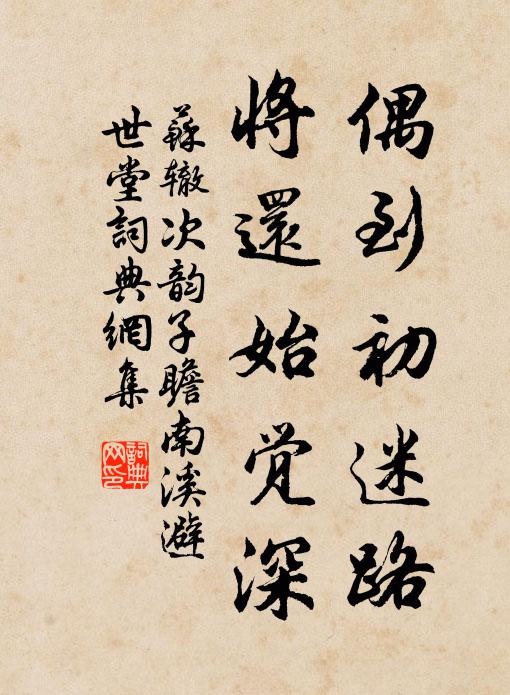 偶到初迷路
將還始觉深
蘇辙次韵子瞻南溪避
世堂詞典網集
詞典
网印